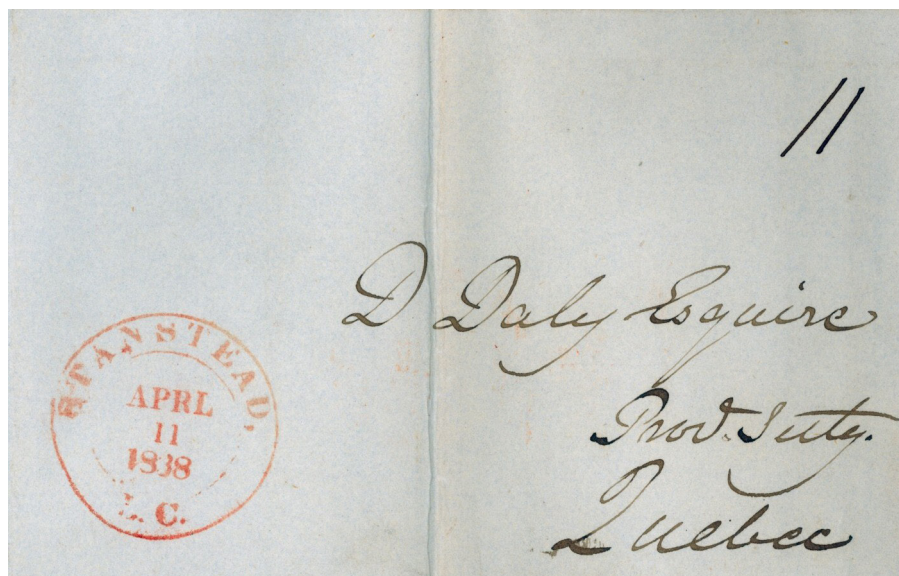 11
D Daly Esquire
Prov. Secty.
Quebec
STANSTEAD,
APRL
11
1838
L. C.